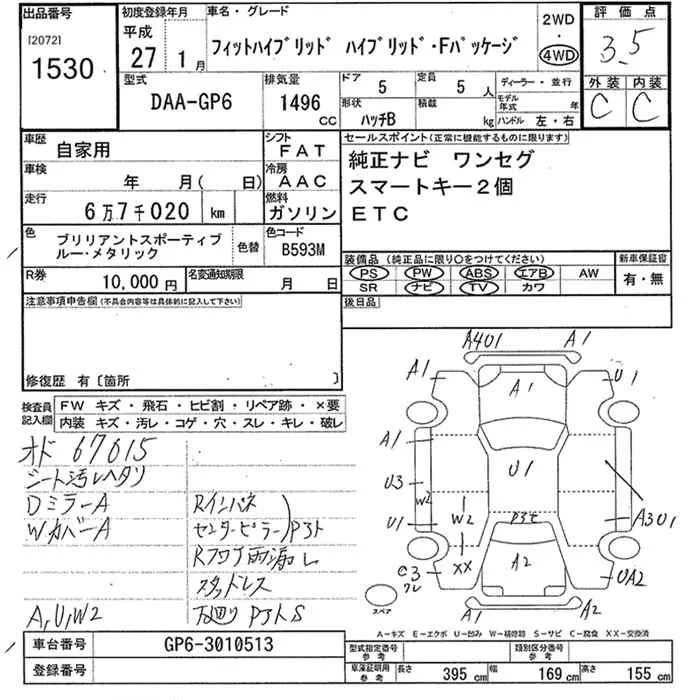 出品番号
[2072]
1530
初度登録年月
平成
27 1 月
車名・グレード
フィットハイブリッド ハイブリッド・Fパッケージ
2WD
4WD
評価点
3.5
外装 内装
C C
型式
DAA-GP6
排気量
1496
CC
ドア
5
定員
5 人
形状
ハッチB
積載
kg
ディーラー・並行
モデル年式 年
ハンドル 左・右
車歴
自家用
シフト
FAT
車検
年 月( 日)
冷房
AAC
走行
6万7千020 km
燃料
ガソリン
色
ブリリアントスポーティブ
ルー・メタリック
色替
色コード
B593M
R券
10,000 円
名変通知期限
月 日
セールスポイント(正常に機能するものに限ります)
純正ナビ ワンセグ
スマートキー2個
ETC
装備品(純正品に限り○をつけてください)
PS PW ABS エアB AW
SR ナビ TV カワ
新車保証書
有・無
後日品
注意事項申告欄(不具合内容等は具体的に記入して下さい)
修復歴 有〔箇所 〕
検査員
記入欄
FW キズ・飛石・ヒビ割・リペア跡・×要
内装 キズ・汚レ・コゲ・穴・スレ・キレ・破レ
オド 67015
シート汚レヘタリ
DミラーA
WカバーA
Rインパネ
センターピラー PJト
Rフロア雨漏レ
スタッドレス
A,U,W2
下廻り PJトS
A4U1
A1
A1
A1
U1
A1
U3
W2
U1
U1
W2
XX
A3U1
A2
C3
UA2
A1
A2
スペア
A-キズ E-エクボ U-凹み W-補修跡 S-サビ C-腐食 XX-交換済
車台番号
GP6-3010513
登録番号
型式指定番号
参考
類別区分番号
参考
車庫証明用
参考
長さ 395 cm 幅 169 cm 高さ 155 cm